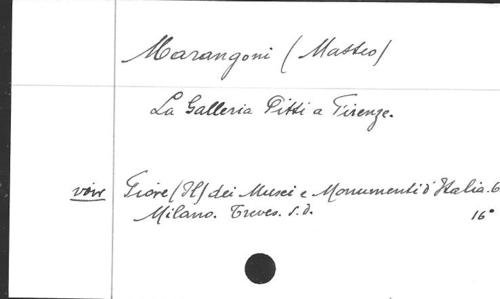 Marangoni (Matteo)
La Galleria Pitti a Firenze.
voir Fiore (Il) dei Musei e Monumenti d'Italia. 6
Milano. Treves. s.d. 16°